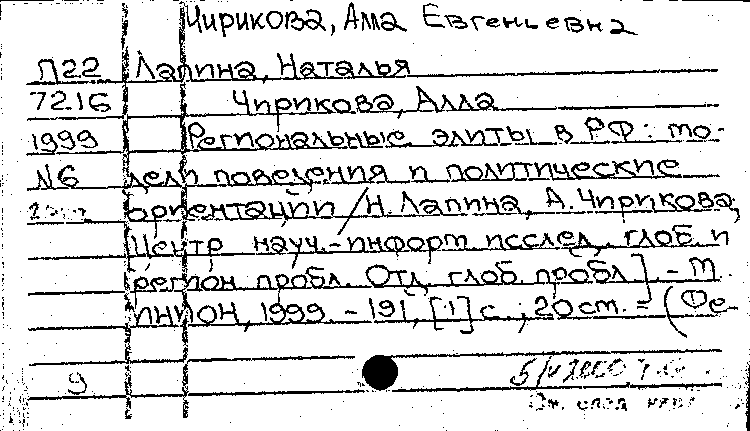 Чирикова, Ама Евгеньевна
П22 Лапина, Наталья
7216 Чирикова, Алла
1999 Региональные элиты в РФ: мо-
N6 дели поведения и политические
ориентации / Н. Лапина, А. Чирикова;
Центр науч.-информ исслед. глоб и
регион пробл. Отд глоб пробл] - М
ИНИОН, 1999. - 191, [1] с.; 20 см. = (Фе-
9
См. след